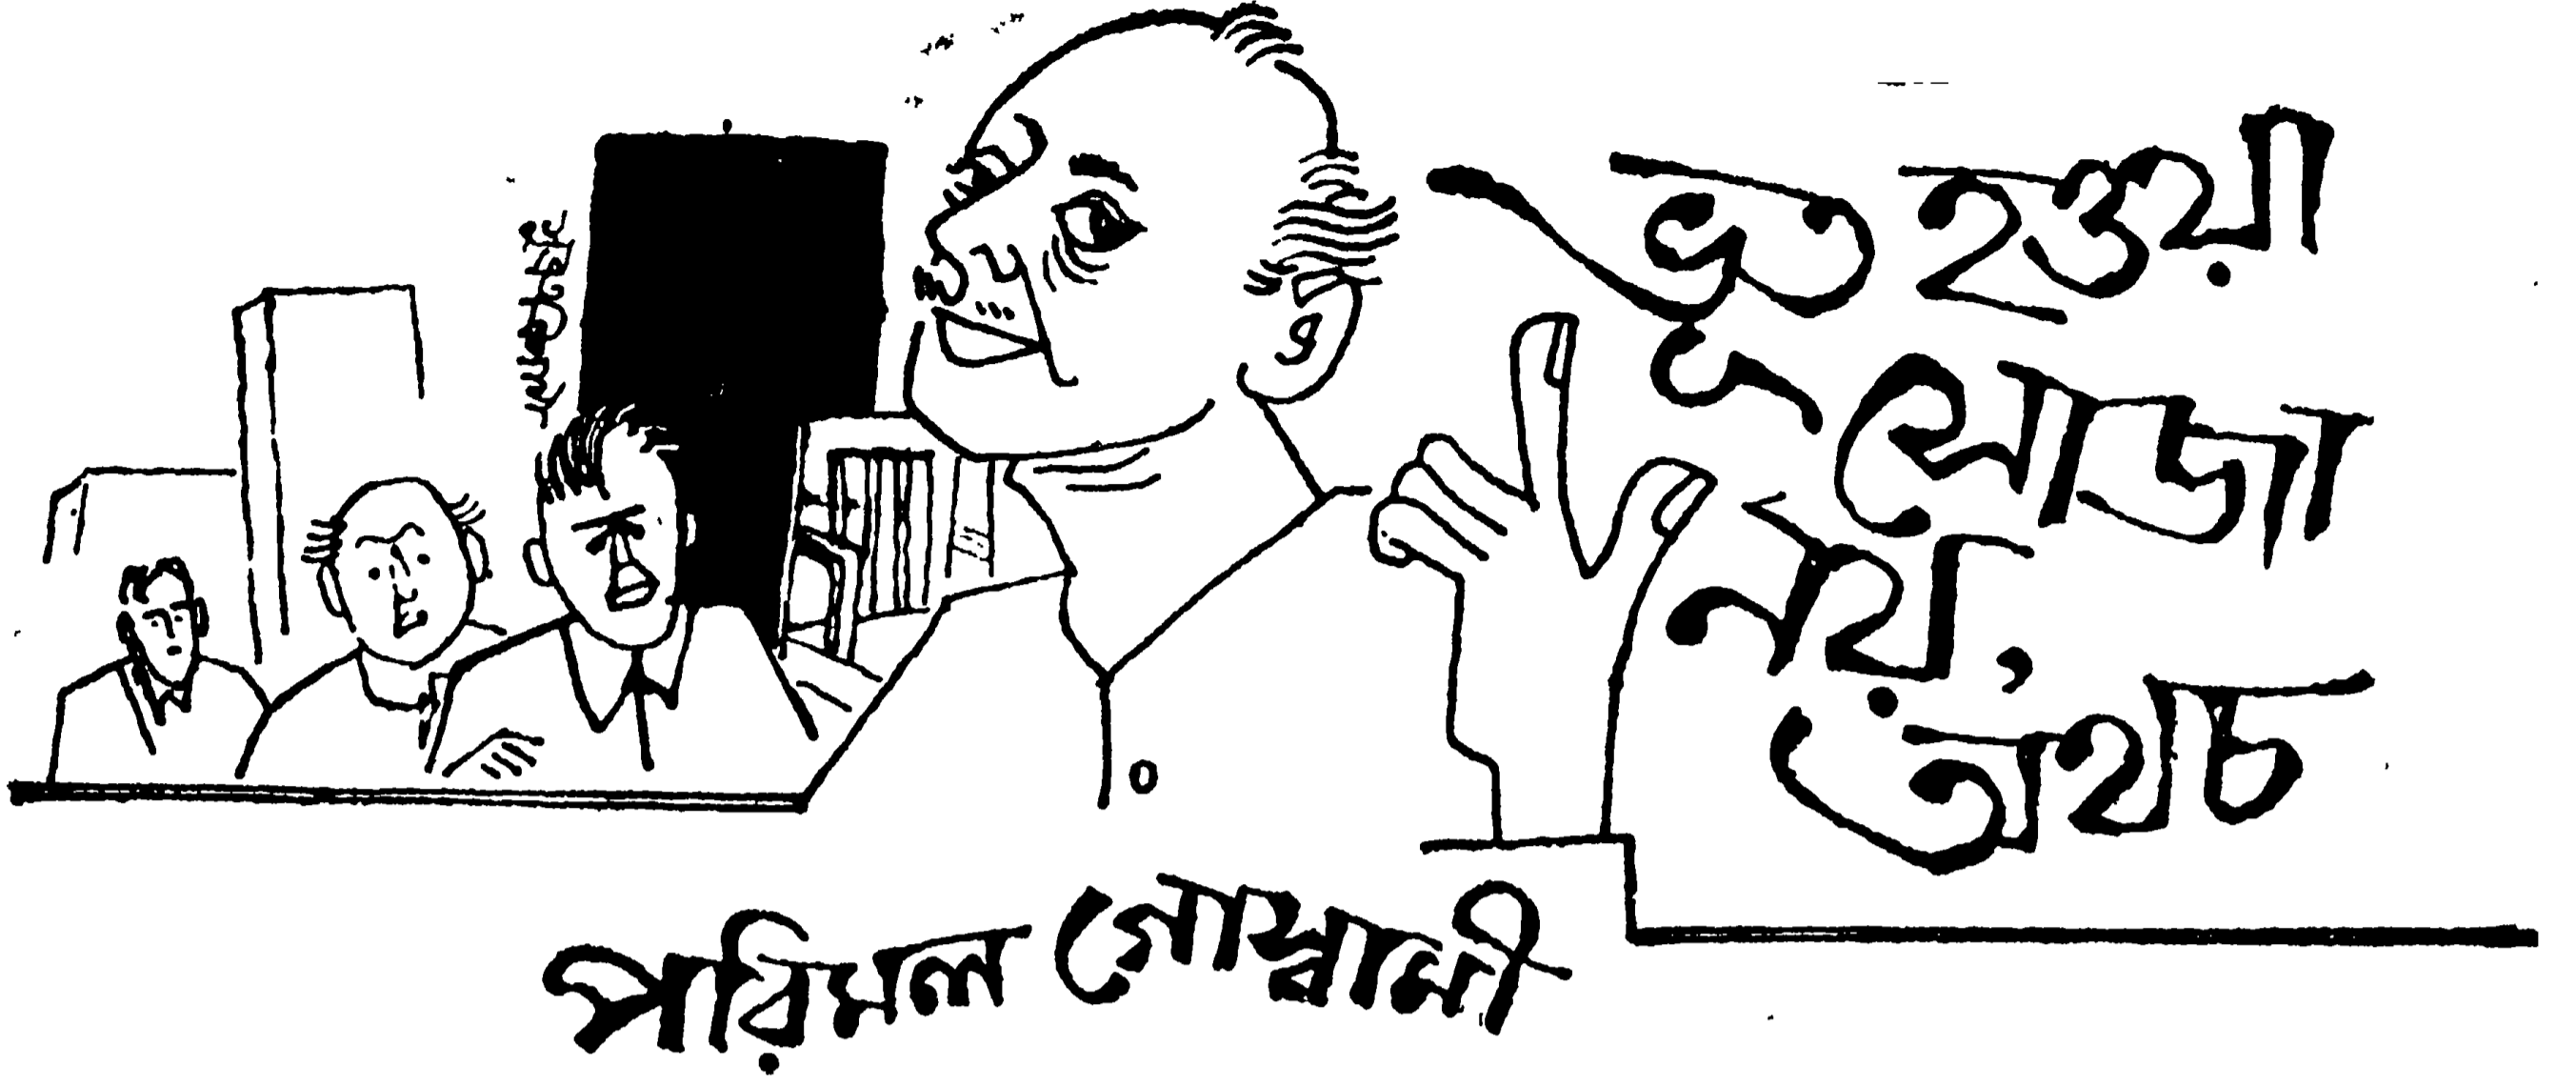 ভূত হওয়া
সোজা
নয়,
অথচ
পরিমল গোস্বামী